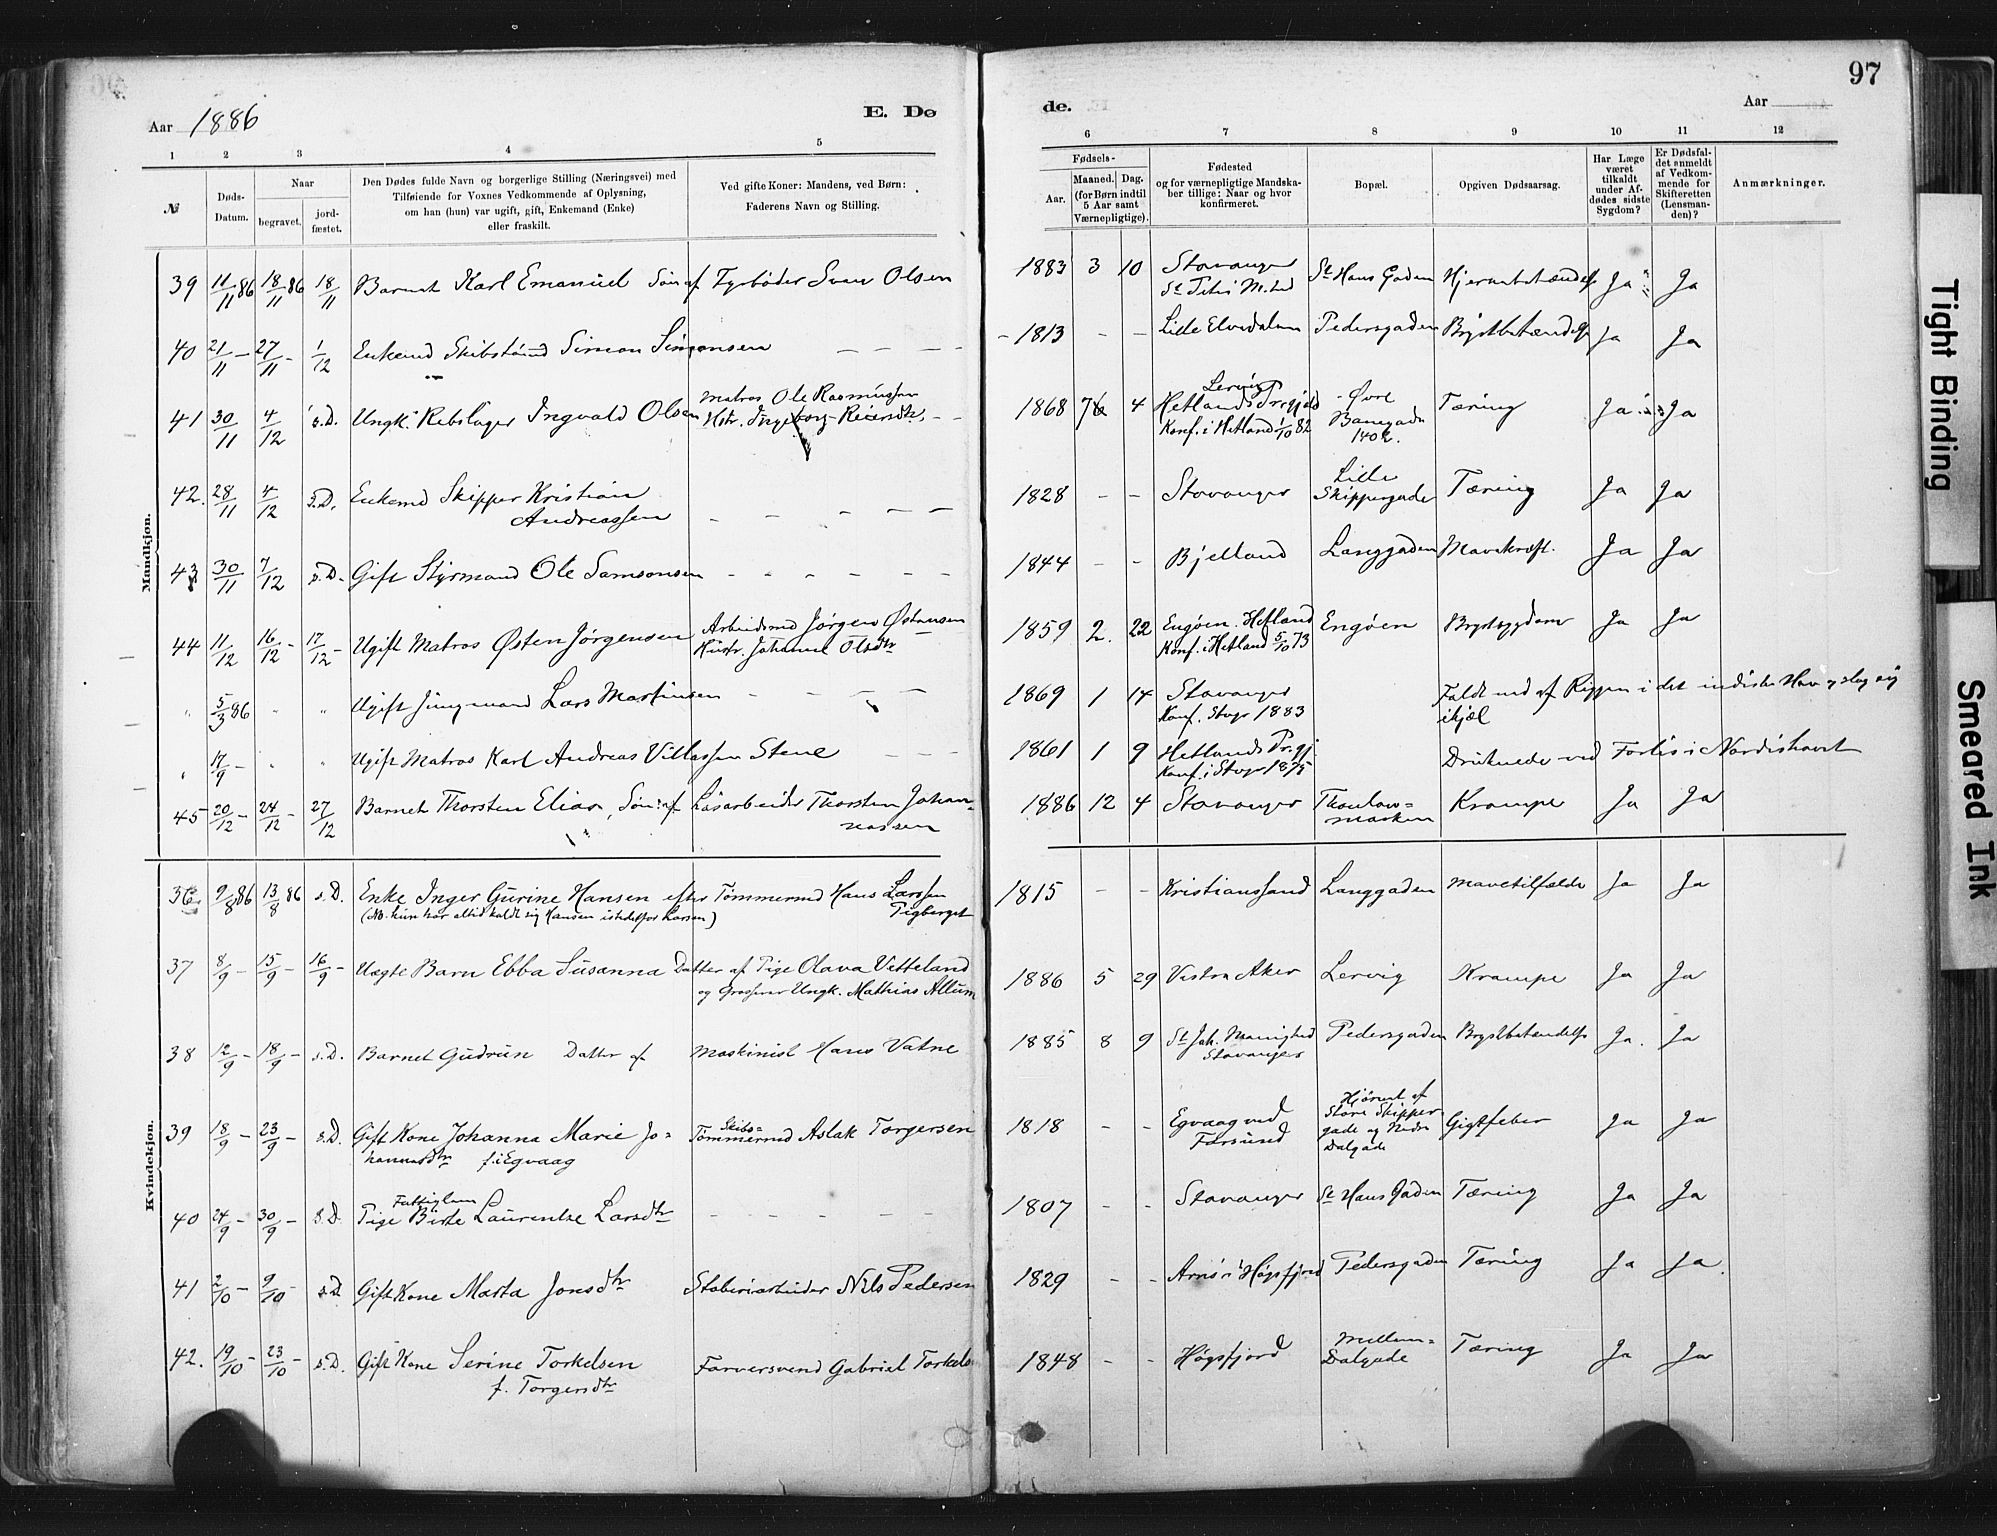 97
Aar 1886
E. Dø
de.
Aar
1 2 3 4 5 6 7 8 9 10 11 12
№
Døds-Datum.
Naar
begravet.
jord-fæstet.
Den Dødes fulde Navn og borgerlige Stilling (Næringsvei) med
Tilføiende for Voxnes Vedkommende af Oplysning,
om han (hun) var ugift, gift, Enkemand (Enke)
eller fraskilt.
Ved gifte Koner: Mandens, ved Børn:
Faderens Navn og Stilling.
Fødsels-
Aar.
Maaned. Dag.
(for Børn indtil
5 Aar samt
Værnepligtige).
Fødested
og for værnepligtige Mandska-
ber tillige: Naar og hvor
konfirmeret.
Bopæl.
Opgiven Dødsaarsag.
Har Læge
været
tilkaldt
under Af-
dødes sidste
Sygdom?
Er Dødsfal-
det anmeldt
af Vedkom-
mende for
Skifteretten
(Lensman-
den)?
Anmærkninger.
Mandkjøn.
39 11/11 86 18/11 86 18/11 Barnet Karl Emanuel Søn af Fyrbøder Svan Olsen 1883 3 10 Stavanger St Hans Gaden Hjernebetændelse Ja Ja
St Petri M.hed
40 21/11 – 27/11 – 1/12 Enkemd Skibstømd Simon Simonsen – – – – 1813 – – Lille Elvedalen Pedersgaden Brystbetændelse Ja Ja
41 30/11 4/12 s.D. Ungk. Rebslager Ingvald Olsen Matros Ole Rasmussen 1868 7 4 Lervig Øvre Tæring Ja Ja
Hstr. Ingeborg Reiersdtr. – – Hetlands Prgjeld Banegade
Konf. i Hetland 1/10 82 140
42. 28/11 4/12 s.D. Enkemd Skipper Kristian 1828 – – Stavanger Lille Tæring Ja Ja
Andreassen – – – – – Skippergade
43 30/11 7/12 s.D. Gift Styrmand Ole Samsonsen – – – – – 1844 – – Bjelland Langgaden Mavekræft. Ja Ja
44 11/12 16/12 – 17/12 – Ugift Matros Østen Jørgensen Arbeidsmd Jørgen Østensen 1859 2. 22 Engøen. Hetland Engøen Brystsygdom Ja Ja
Hustr. Johanne Olsdtr Konf. i Hetland 5/10 73
" 5/3 86 " " Ugift Jungmand Lars Martinsen – – – – 1869 1 14 Stavanger Faldt ned af Riggen i det indiske Hav og slog sig
Konf. Stvgr 1883 ihjæl
" 17/9 – " " Ugift Matros Karl Andreas Villassen Stene – – 1861 1 9 Hetlands Prgj. Druknede ved Forlis i Nordishavet
Konf. i Stvgr 1875
45 20/12 – 24/12 – 27/12 Barnet Thorsten Elias, Søn af Løsarbeider Thorsten Johan- 1886 12 4 Stavanger Thoulow= Krampe Ja Ja
nessen marken
Kvindekjøn.
36 9/8 86 13/8 86 s.D. Enke Inger Gurine Hansen efter Tømmermd Hans Larssen 1815 – – Kristianssand Langgaden Mavetilfælde Ja Ja
(Nb. hun har altid kaldt sig Hansen istedetfor Larsen) Tigberget
37 8/9 – 15/9 – 16/9 – Uægte Barn Ebba Susanna Datter af Pige Olava Vetteland 1886 5 29 Vestre Aker Lervig Krampe Ja Ja
og Grosserer Ungk. Mathias Allum
38 12/9 – 18/9 – s.D. Barnet Gudrun Datter af Maskinist Hans Vatne 1885 8 9 St Joh. Menighed Pedersgaden Brystbetændelse Ja. Ja
Stavanger
39 18/9 – 23/9 – s.D. Gift Kone Johanna Marie Jo= Skibs= Tømmermd Aslak Torgersen 1818 – – Egvaag ved Hjørnet af Gigtfeber Ja Ja
hannesdtr f. i Egvaag Farsund Store Skipper
gade og Nedre
Dalgade
40 24/9 – 30/9 – s.D. Fattiglem 1807 – – Stavanger St Hans Gaden Tæring Ja Ja
Pige Birte Laurentze Larsdtr – – – – –
41 2/10 – 9/10 – s.D. Gift Kone Marta Jonsdtr Støberiarbeider Nils Pedersen 1829 – – Arnø i Høgsfjord Pedersgaden Tæring Ja Ja.
42. 19/10 – 23/10 – s.D. Gift Kone Serine Torkelsen Farversvend Gabriel Torkels 1848 – – Høgsfjord Mellem= Tæring Ja Ja
f. Torgersdtr Dalgade
Tight Binding
Smeared Ink